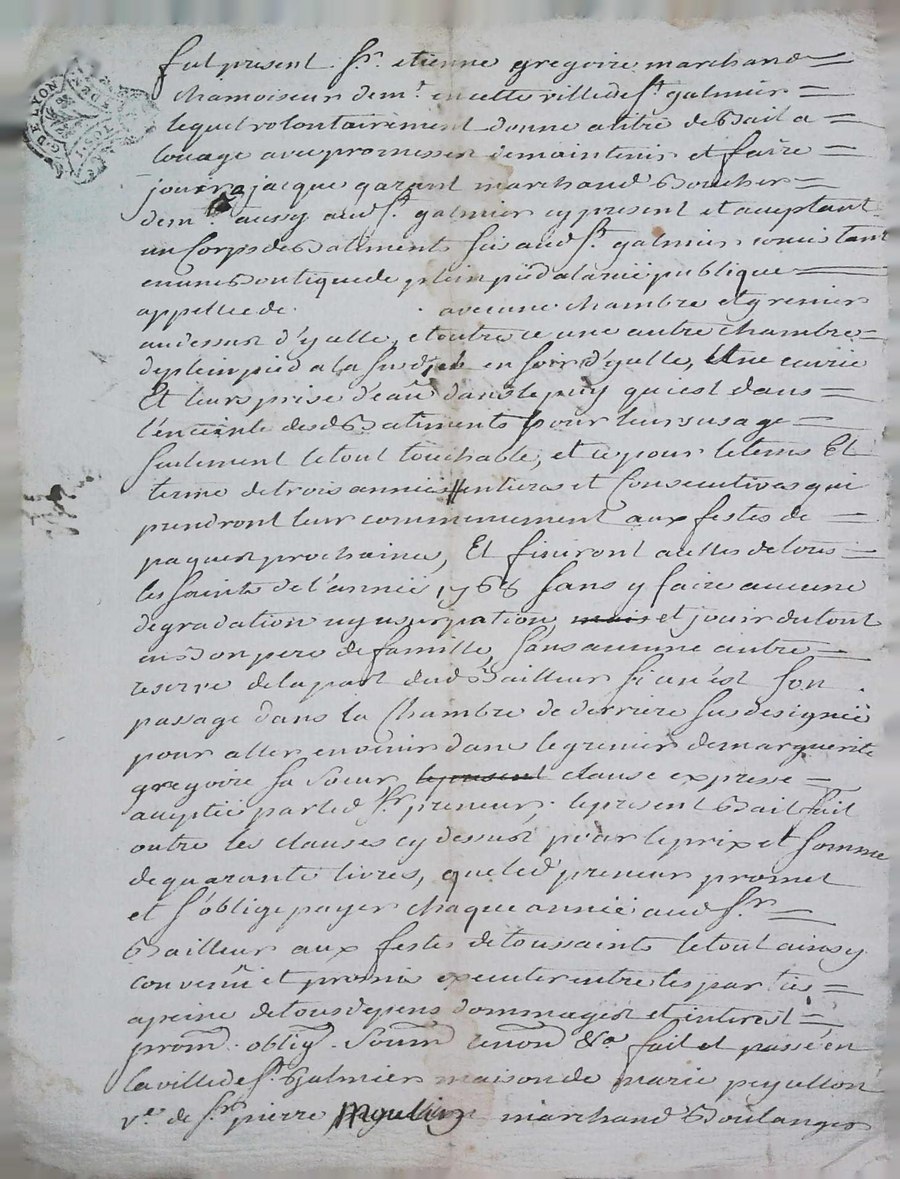 G. DE LYON
fut present Sr. etienne gregoire marchand
chamoiseur demt. en cette ville de St. galmier
lequel volontairement donne a titre de Bail a
louage avec promesse de maintenir et faire
jouir a jacque garant marchand Boucher
demt. aussy aud St. galmier cy present et acceptant
un Corps de Batiments sis aud St. galmier consistant
en une Boutique de plein pied a la rüe publique
appellée de . avec une chambre et grenier
au dessus d'ycelle, et outre ce une autre chambre
de plein pied a la susd. en soir d'ycelle, Une ecurie
Et leur prise d'eau dans le puy qui est dans
l'enceinte desd Batiments pour leurs usage
seulement le tout touchable, et ce pour le tems Et
terme de trois années entieres et Consecutives qui
prendront leur commencement aux festes de
paques prochaines, Et finiront a celles de tous
les saints de l'année 1768 sans y faire aucune
degradation ny usurpation, mais et jouir du tout
en Bon pere de famille, sans aucune autre
reserve de la part dud Bailleur si n'est son
passage dans la Chambre de derriere sus designée
pour aller en venir dans le grenier de marguerite
gregoire sa soeur, le present clause expresse
acceptée par led Sr. preneur. le present Bail fait
outre les clauses cy dessus pour le prix et somme
de quarante livres, que led preneur promet
et s'oblige payer chaque année aud Sr.
Bailleur aux festes de toussaints le tout ainsy
convenu et promis executer entre les parties
a peine de tous depens dommages et interest
prom. oblig. Soum. renon. &a. fait et passé en
la ville de St. Galmier maison de marie peyullon
ve. de Sr. pierre Moulin marchand Boulanger